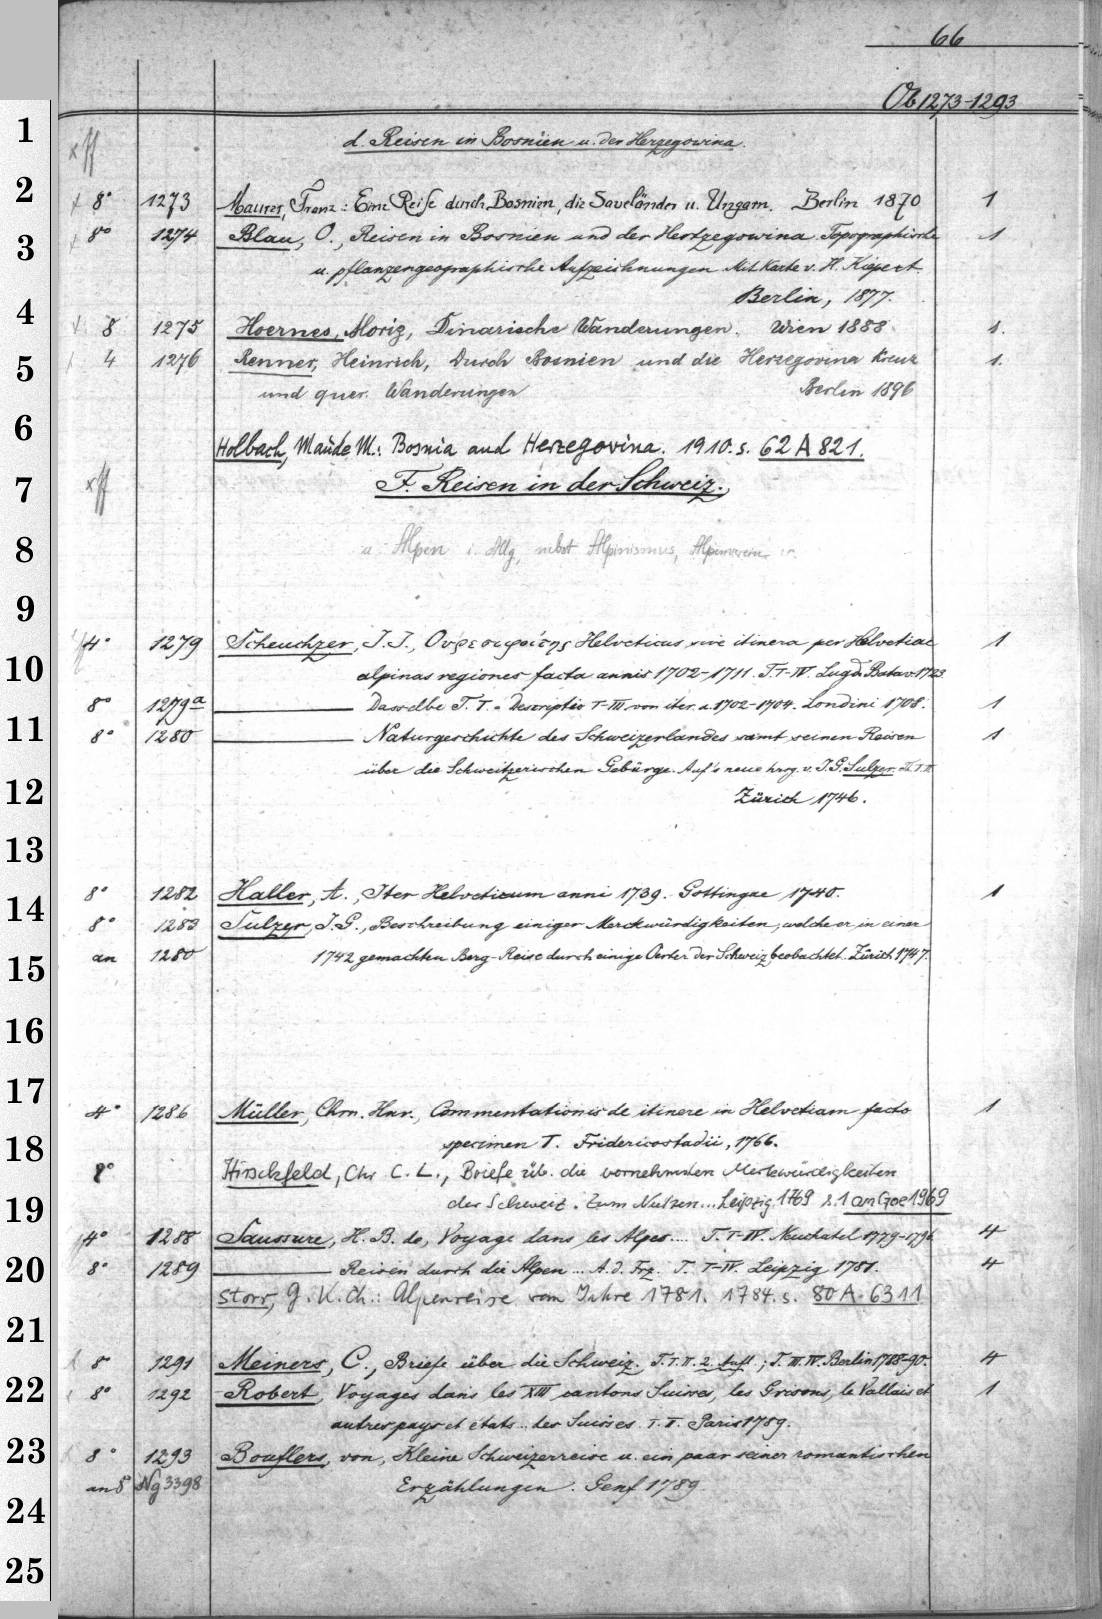 66
Ob 1273-1293
1
2
3
4
5
6
7
8
9
10
11
12
13
14
15
16
17
18
19
20
21
22
23
24
25
d. Reisen in Bosnien u. der Herzegovina.
8° 1273 Maurer, Franz: Eine Reise durch Bosnien, die Saveländer u. Ungarn. Berlin 1870 1
8° 1274 Blau, O., Reisen in Bosnien und der Hertzegowina. Topographische 1
u. pflanzengeographische Aufzeichnungen Mit Karte v. H. Kiepert.
Berlin, 1877.
8 1275 Hoernes, Moriz, Dinarische Wanderungen. Wien 1888 1.
4 1276 Renner, Heinrich, Durch Bosnien und die Herzegovina Kreuz 1.
und quer. Wanderungen Berlin 1896
Holbach, Maude M.: Bosnia and Herzegovina. 1910. s. 62 A 821.
F. Reisen in der Schweiz.
u. Alpen i. Allg. nebst Alpinismus, Alpenverein
4° 1279 Scheuchzer, J. J., Ουρεσιφοίτης Helveticus sive itinera per Helvetiae 1
alpinas regiones facta annis 1702-1711. T. I-IV. Lugd. Batav. 1723
8° 1279a ——— Dasselbe T. I. = Descriptio I-III von iter. a. 1702-1704. Londini 1708. 1
8° 1280 ——— Naturgeschichte des Schweizerlandes samt seinen Reisen 1
über die Schweitzerischen Gebürge. Auf's neue hrsg. v. J. G. Sulzer.
Zürich 1746.
8° 1282 Haller, A., Iter Helveticum anni 1739. Gottingae 1740. 1
8° 1283 Sulzer, J. G., Beschreibung einiger Merckwürdigkeiten, welche er in einer
an 1280 1742 gemachten Berg-Reise durch einige Oerter der Schweiz beobachtet. Zürich 1747.
4° 1286 Müller, Chrn. Hnr., Commentationis de itinere in Helvetiam facto 1
specimen I. Fridericostadii, 1766.
8° Hirschfeld, Chr. C. L., Briefe üb. die vornehmsten Merkwürdigkeiten
der Schweiz. Zum Nutzen... Leipzig 1769 s. 1 an Goe 1969
4° 1288 Saussure, H. B. de, Voyage dans les Alpes.... T. I-IV. Neuchatel 1779-1796 4
8° 1289 ——— Reisen durch die Alpen... A. d. Frz. T. I-IV. Leipzig 1781. 4
Storr, G. K. Ch.: Alpenreise vom Jahre 1781. 1784. s. 80 A 6311
8° 1291 Meiners, C., Briefe über die Schweiz. T. I. II. 2. Aufl.; T. III. IV. Berlin 1788-90. 4
8° 1292 Robert, Voyages dans les XIII cantons Suisses, les Grisons, le Vallais et 1
autres pays et états... des Suisses. T. I. II. Paris 1789.
8° 1293 Bouflers, von, Kleine Schweizerreise u. ein paar seiner romantischen
an 8° Ng 3398 Erzählungen. Genf 1789